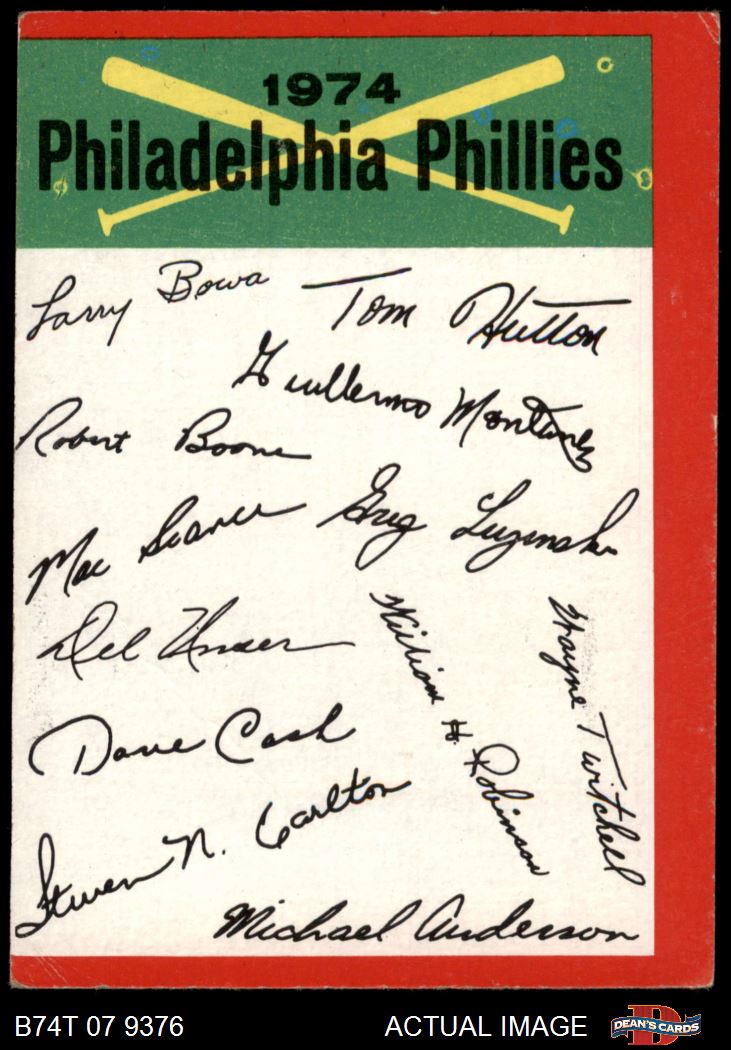 1974
Philadelphia Phillies
Larry Bowa
Tom Hutton
Guillermo Montanez
Robert Boone
Mac Scarce
Greg Luzinski
Del Unser
William H. Robinson
Wayne Twitchell
Dave Cash
Steven N. Carlton
Michael Anderson
B74T 07 9376
ACTUAL IMAGE
DEAN'S CARDS